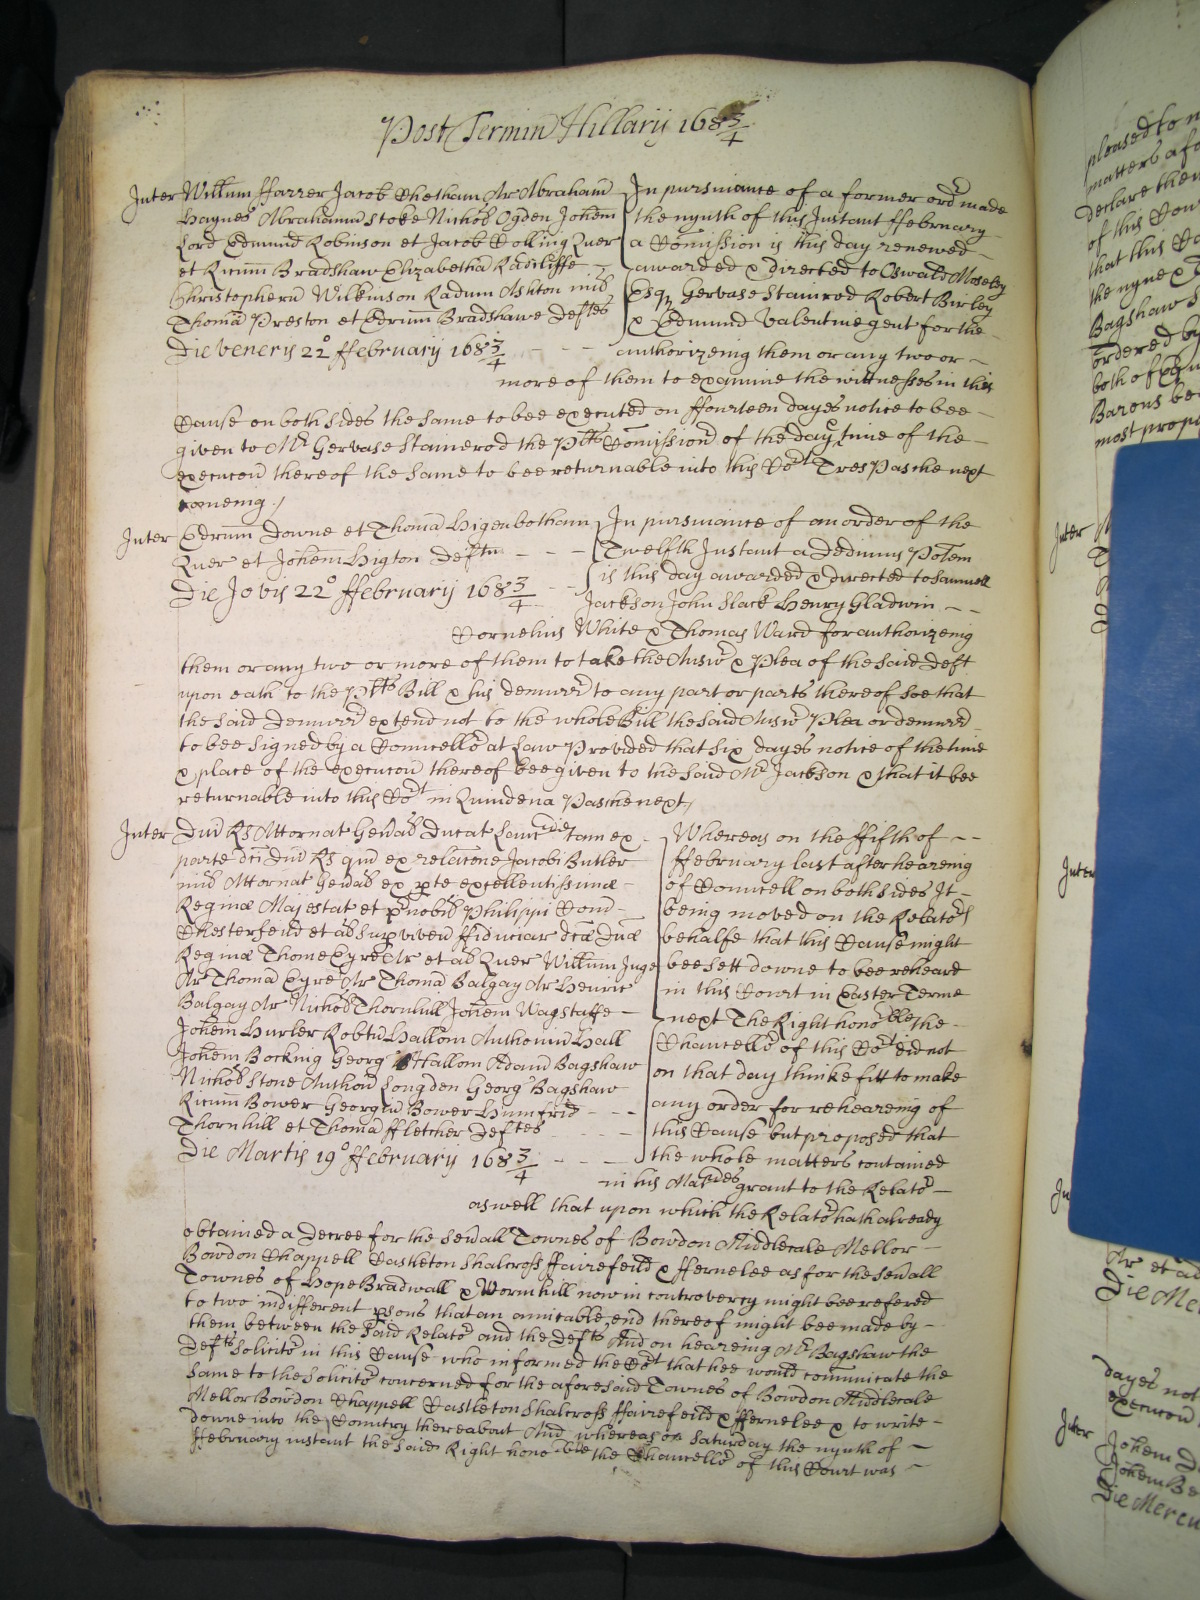 Post Termin Hillarij 168¾
Inter Willum ffarrer Jacob Chetham Ar Abraham
Haynes Abrahamū Stoke Nichōs Ogden Johem
Lord Edmund Robinson et Jacob Rolling Quer
et Ricum Bradshaw Elizabetha Radcliffe –
Christopherū Wilkinson Radum Ashton
Thomā Preston et Edrum Bradshawe Deftes
Die veneris 22° ffebruarij 168¾
In pursuance of a former ordr made
the nynth of this Instant ffebruary
a Comission is this day renewed –
awarded & directed to Oswald Moseley
Esqr Gervase Stainrod Robert Birley
& Edmund Valentine gent for the –
authorizeing them or any two or –
more of them to examine the wittnesses in this
Cause on both sides the same to bee executed on ffourteen dayes notice to bee –
given to Mr Gervase Stainerod the Plts Comissionr of the day & time of the –
execucon thereof the same to bee returnable into this Cot Tres Pasche next
comeing /
Inter Edrum Downe et Thomā Higenbotham
Quer et Johem Higton Deftm – – –
Die Jovis 22° ffebruarij 168¾
In pursuance of an order of the
Twelfth Instant a Dedimus Potem
is this day awarded & directed to Samuell
Jackson John Slack Henry Gladwin – –
Cornelius White & Thomas Ward for authorizeing
them or any two or more of them to take the Answr & Plea of the said Deft
upon oath to the Plts Bill & his demurrr to any part or parts thereof soe that
the said Demurrr extend not to the whole Bill the said Answr Plea or demurrr
to bee signed by a Councellr at Law Provided that six dayes notice of the time
& place of the execucon thereof bee given to the said Mr Jackson & that it bee
returnable into this Cot in Quindena Pasche next /
Inter Dnī Rs Attornat Genāl Ducat Lanc die tam ex –
parte dcī Dnī Rs qm ex relacone Jacobi Butler
Attornat Genāl ex pte excellentissimæ –
Reginæ Majestat et prnobil Philippi Com –
Chesterfeild et al supviven ffiduciar dcæ Dnæ
Reginæ Thome Eyre Ar et al Quer Willum Inge
Ar Thomā Eyre Ar Thomā Balgay Ar Henric
Balgay Ar Nichōs Thornhill Johem Wagstaffe –
Johem Hurler Robtū Hallom Anthoniū Hall
Johem Bocking Georg Hallom Adamū Bagshaw
Nichōs Stone Anthon Longden Georg Bagshaw
Ricum Bower Georgiū Bower Humfrid – – –
Thornhill et Thomā ffletcher Deftes
Die Martis 19° ffebruarij 168¾
Whereas on the ffifth of – –
ffebruary last after heareing
of Councell on both sides It –
being moved on the Relatrs
behalfe that this Cause might
bee sett downe to bee reheard
in this Court in Easter Terme
next The Right honoble the –
Chancellr of this Cot did not
on that day thinke fitt to make
any order for reheareing of
this Cause but proposed that
the whole matters contained
in his Maties grant to the Relatr –
as well that upon which the Relatr hath already
obtained a Decree for the sevall Townes of Bowdon Middlecale Mellor –
Bowdon Chappell Castleton Shalcross ffairefeild & ffernelee as for the sevall
Townes of Hope Bradwall & Wormhill now in controvercy might bee refered
to two indifferent psons that an amicable end thereof might bee made by –
them between the said Relatr and the Defts And on heareing Mr Bagshaw the
Defts Solicitr in this Cause who informed the Cot that hee would communicate the
same to the Solicitr concerned for the aforesaid Townes of Bowdon Middlecale
Mellor Bowdon Chappell Castleton Shalcross ffairefeild & ffernelee & to write –
downe into the Country thereabout And whereas on Saturday the nynth of –
ffebruary instant the said Right honoble the Chancellr of this Court was –
pleased to
matters
declare
of this
that this
the nyne
Bagshaw
ordered
both of
Barons
most
Inter
Inter
Ar et
Die
dayes not
execucon
Inter Johem
Johem
Die Mercu